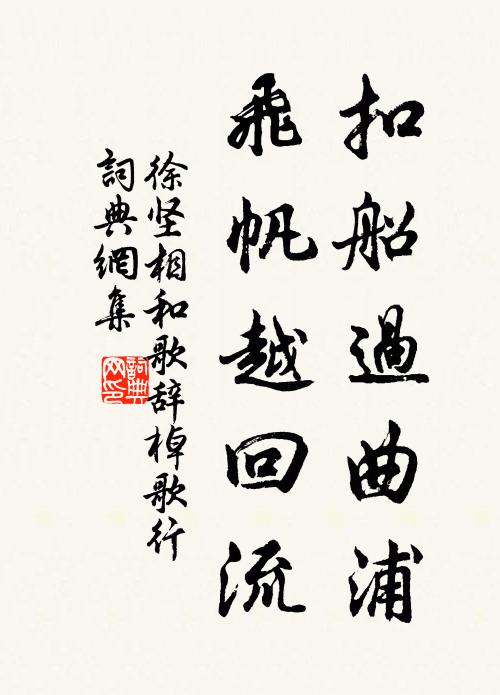 扣船過曲浦
飛帆越回流
徐坚相和歌辞棹歌行
詞典網集
詞典
网印